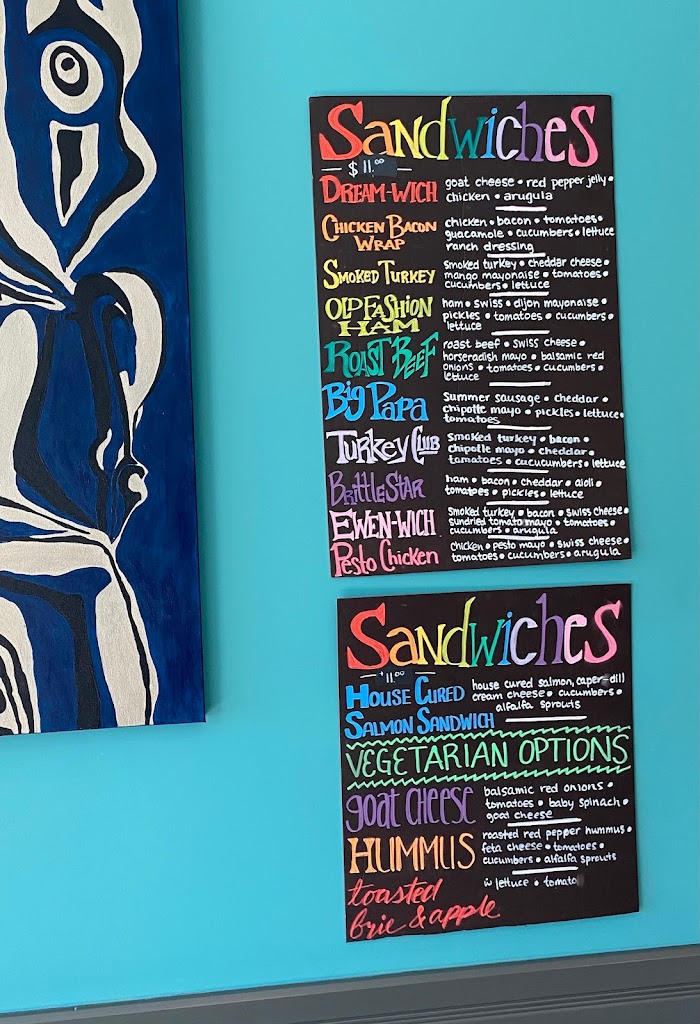 Sandwiches
$11.00
Dream-wich
goat cheese • red pepper jelly •
chicken • arugula
Chicken Bacon
Wrap
chicken • bacon • tomatoes •
guacamole • cucumbers • lettuce
ranch dressing
Smoked Turkey
Smoked turkey • cheddar cheese •
mango mayonaise • tomatoes •
cucumbers • lettuce
Old Fashion
Ham
ham • swiss • dijon mayonaise •
pickles • tomatoes • cucumbers •
lettuce
Roast Beef
roast beef • swiss cheese •
horseradish mayo • balsamic red
onions • tomatoes • cucumbers •
lettuce
Big Papa
Summer sausage • cheddar •
chipotle mayo • pickles • lettuce •
tomatoes
Turkey Club
Smoked turkey • bacon •
chipotle mayo • cheddar •
tomatoes • cucucumbers • lettuce
BrittleStar
ham • bacon • cheddar • aioli •
tomatoes • pickles • lettuce
Ewen-wich
Smoked turkey • bacon • swiss cheese •
sundried tomato mayo • tomatoes •
cucumbers • arugula
Pesto Chicken
chicken • pesto mayo • swiss cheese •
tomatoes • cucumbers • arugula
Sandwiches
$11.00
House Cured
Salmon Sandwich
house cured salmon, caper-dill
cream cheese • cucumbers •
alfalfa sprouts
VEGETARIAN OPTIONS
goat cheese
balsamic red onions •
tomatoes • baby spinach •
goat cheese
Hummus
roasted red pepper hummus •
feta cheese • tomatoes •
cucumbers • alfalfa sprouts
toasted
brie & apple
w lettuce • tomato